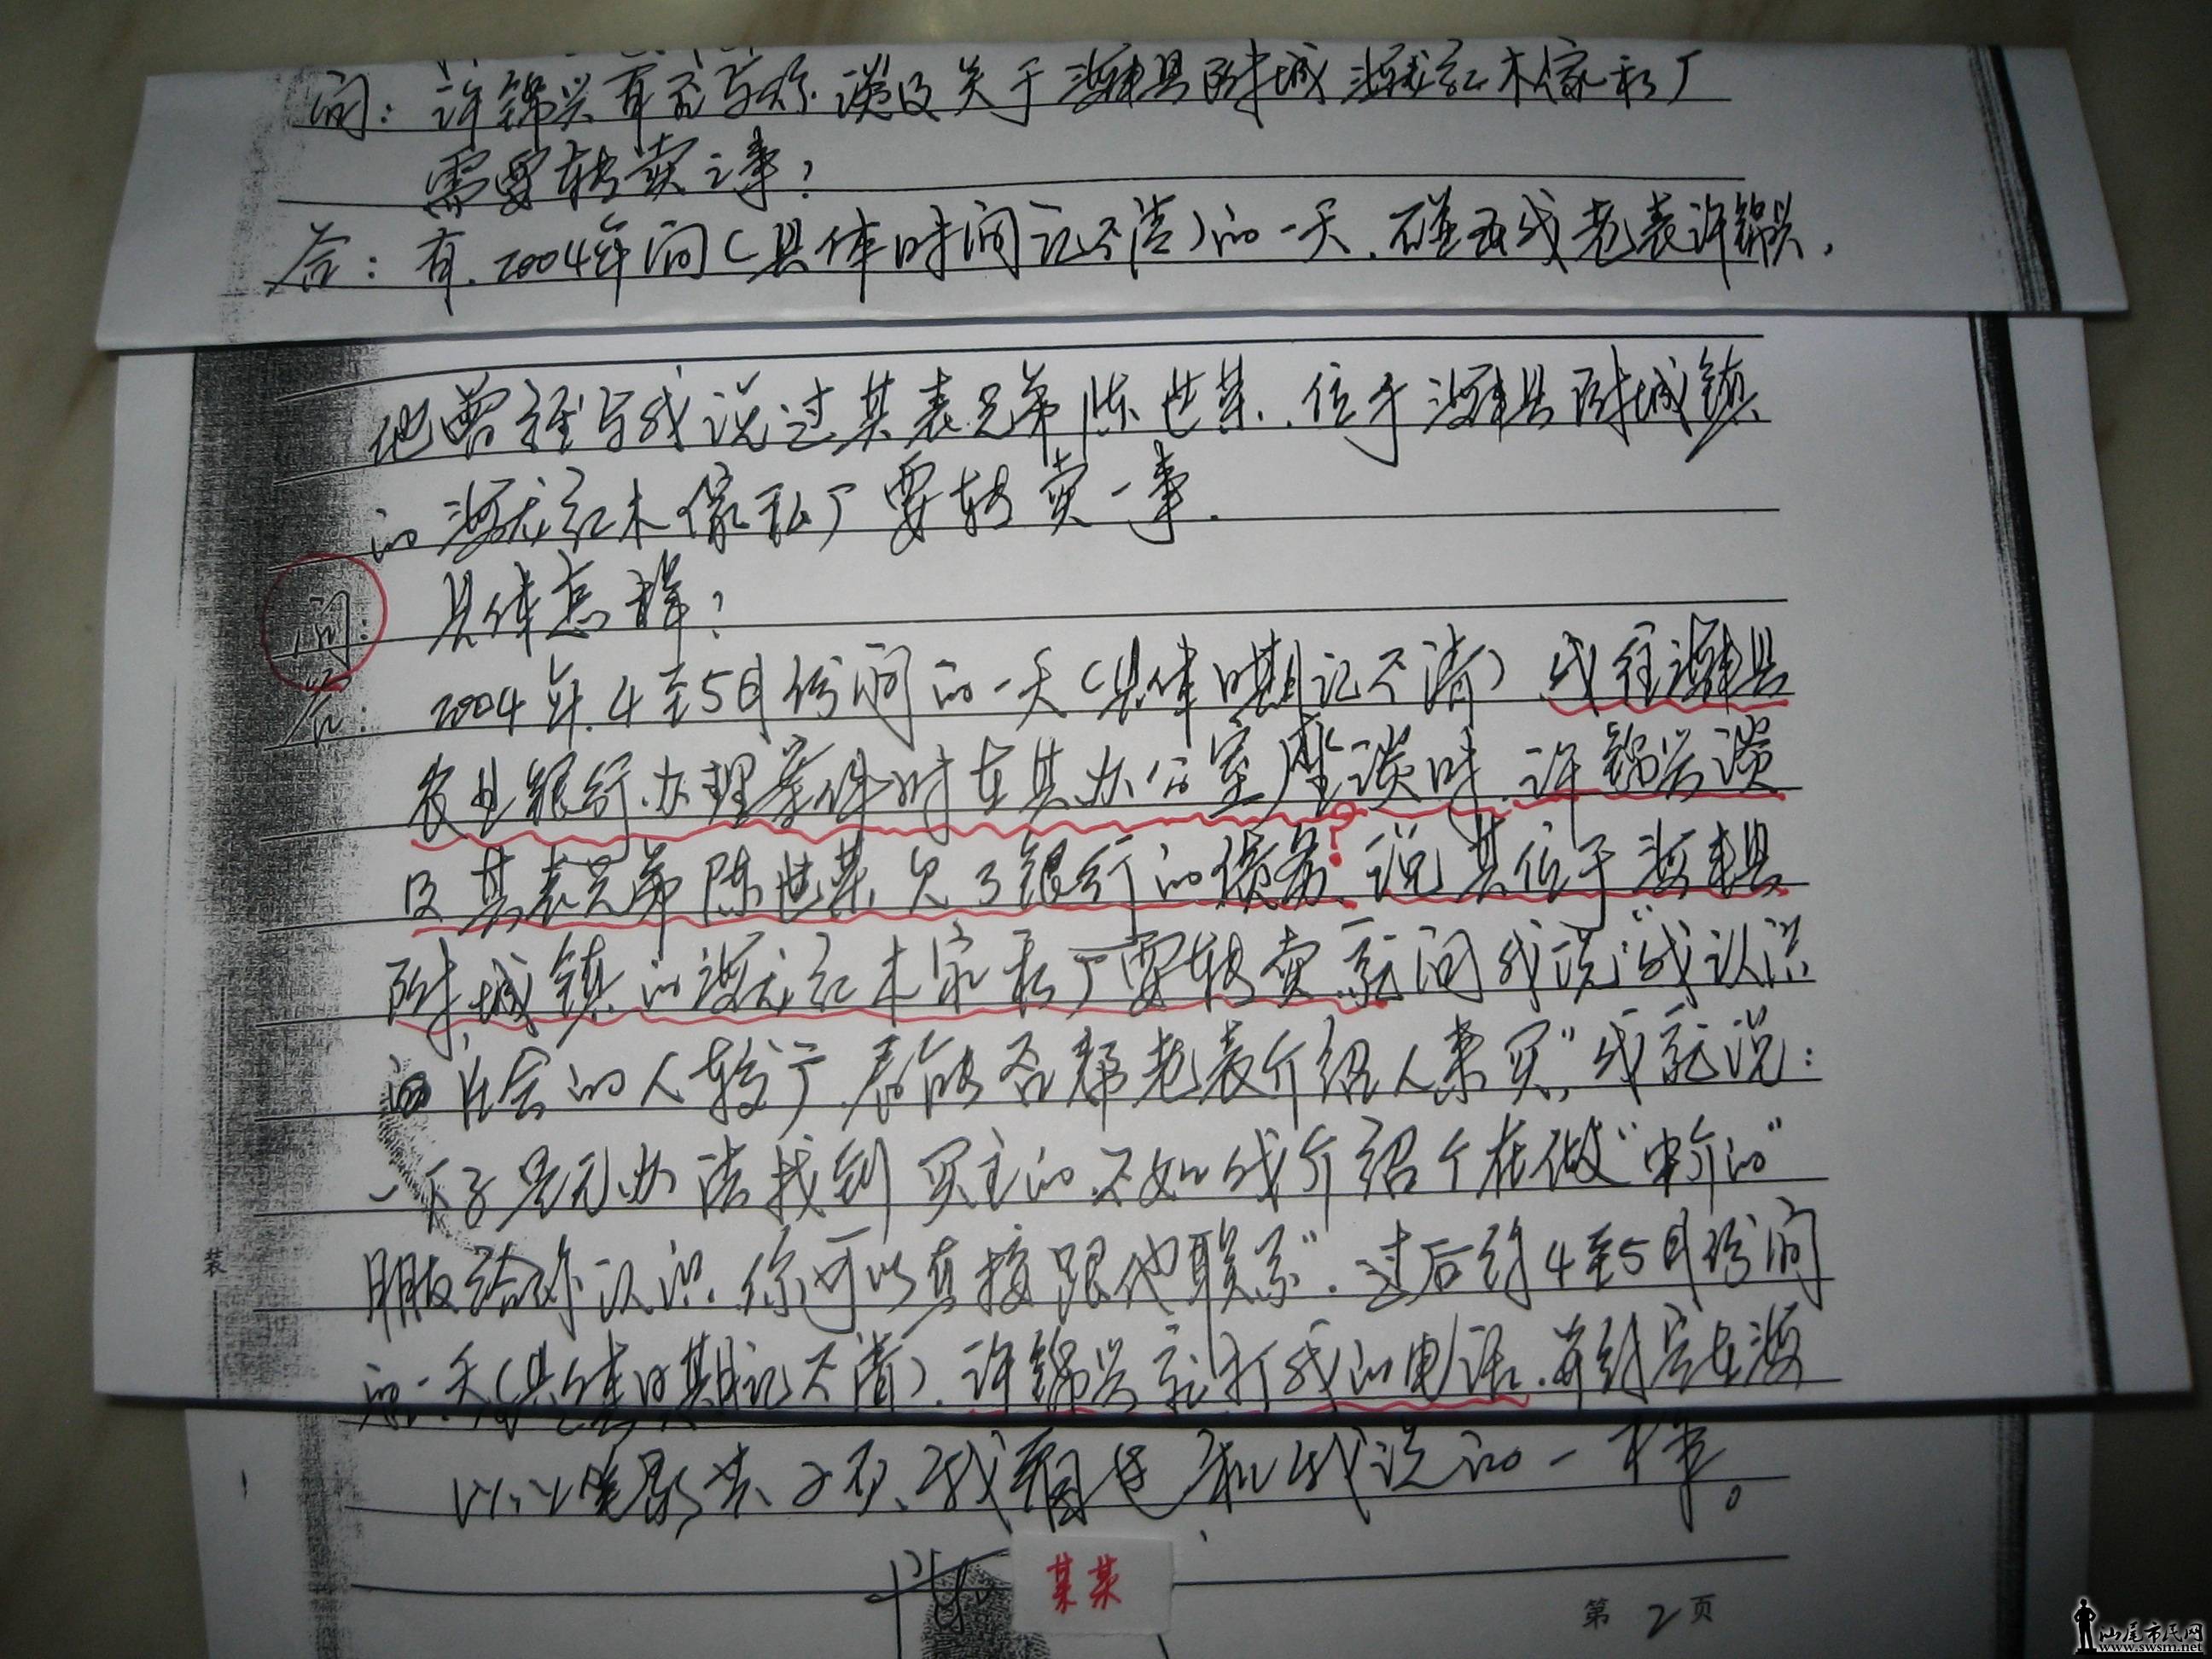 问：许锦兴有否与你谈及关于海丰县附城海龙红木傢私厂
需要转卖之事？
答：有，2004年间（具体时间记不清）的一天，碰到我老表许锦兴，
他曾经与我说过其表兄弟陈世某，位于海丰县附城镇
的海龙红木傢私厂要转卖一事.
问：具体怎样？
答：2004年4至5月份间的一天（具体日期记不清）我往海丰县
农业银行办理案件时在其办公室座谈时，许锦兴谈
?
及其表兄弟陈世某欠了银行的债务，说其位于海丰县
附城镇的海龙红木家私厂要转卖，就问我说：“我认识
的社会的人较广，看能否帮老表介绍人来买”，我就说：
一下子是无办法找到买主的，不如我介绍个在做“中介的”
朋友给你认识，你可以直接跟他联系”. 过后到4至5月份间
的一天（具体日期记不清），许锦兴就打我的电话，并约定在海
以上笔录共2页、我看过和我说的一样。
某某
第2页
装
汕尾市民网
www.swsm.net